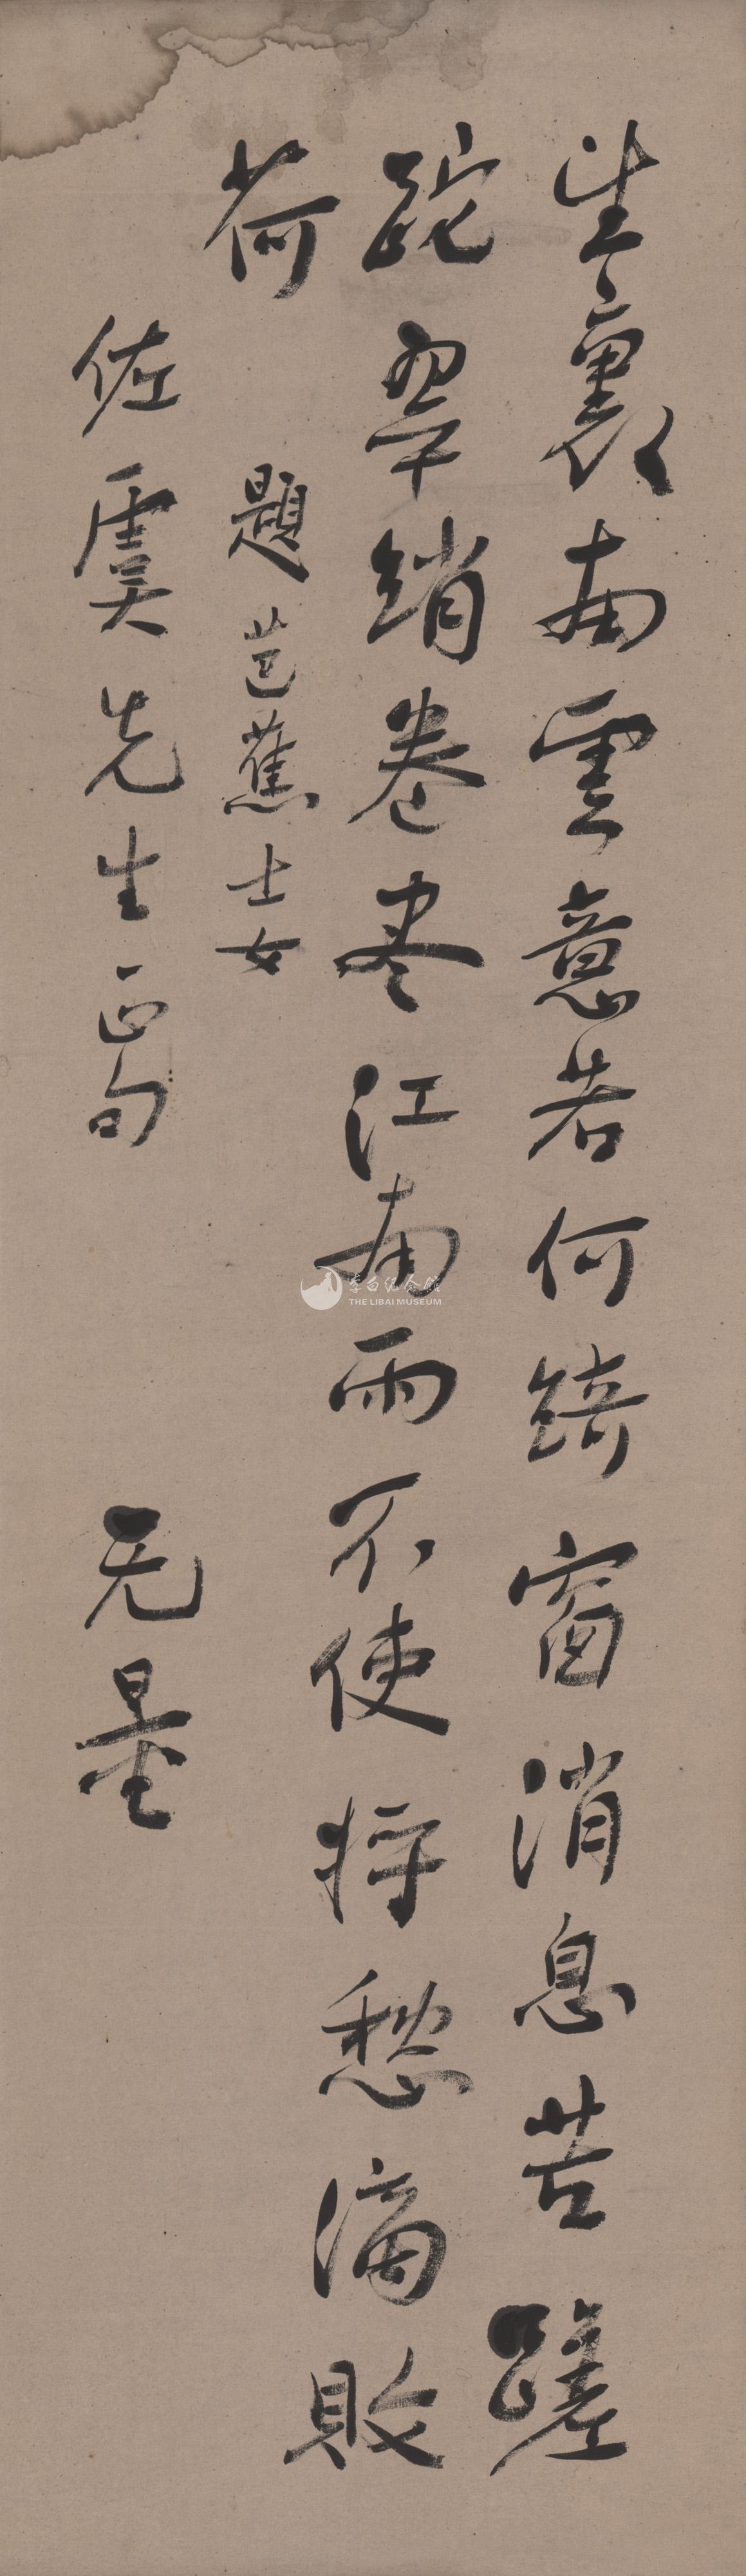 裏南雲意若何綺窗消息苦蹉
跎翠綃卷尽江南雨不使将愁滴敗
荷 題芭蕉士女
佐虞先生正句 无量
李白纪念馆
THE LIBAI MUSEUM